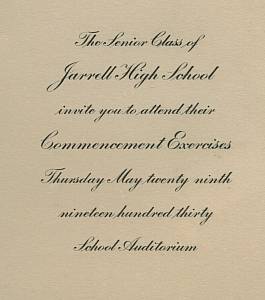 The Senior Class of
Jarrell High School
invite you to attend their
Commencement Exercises
Thursday May twenty ninth
nineteen hundred thirty
School Auditorium